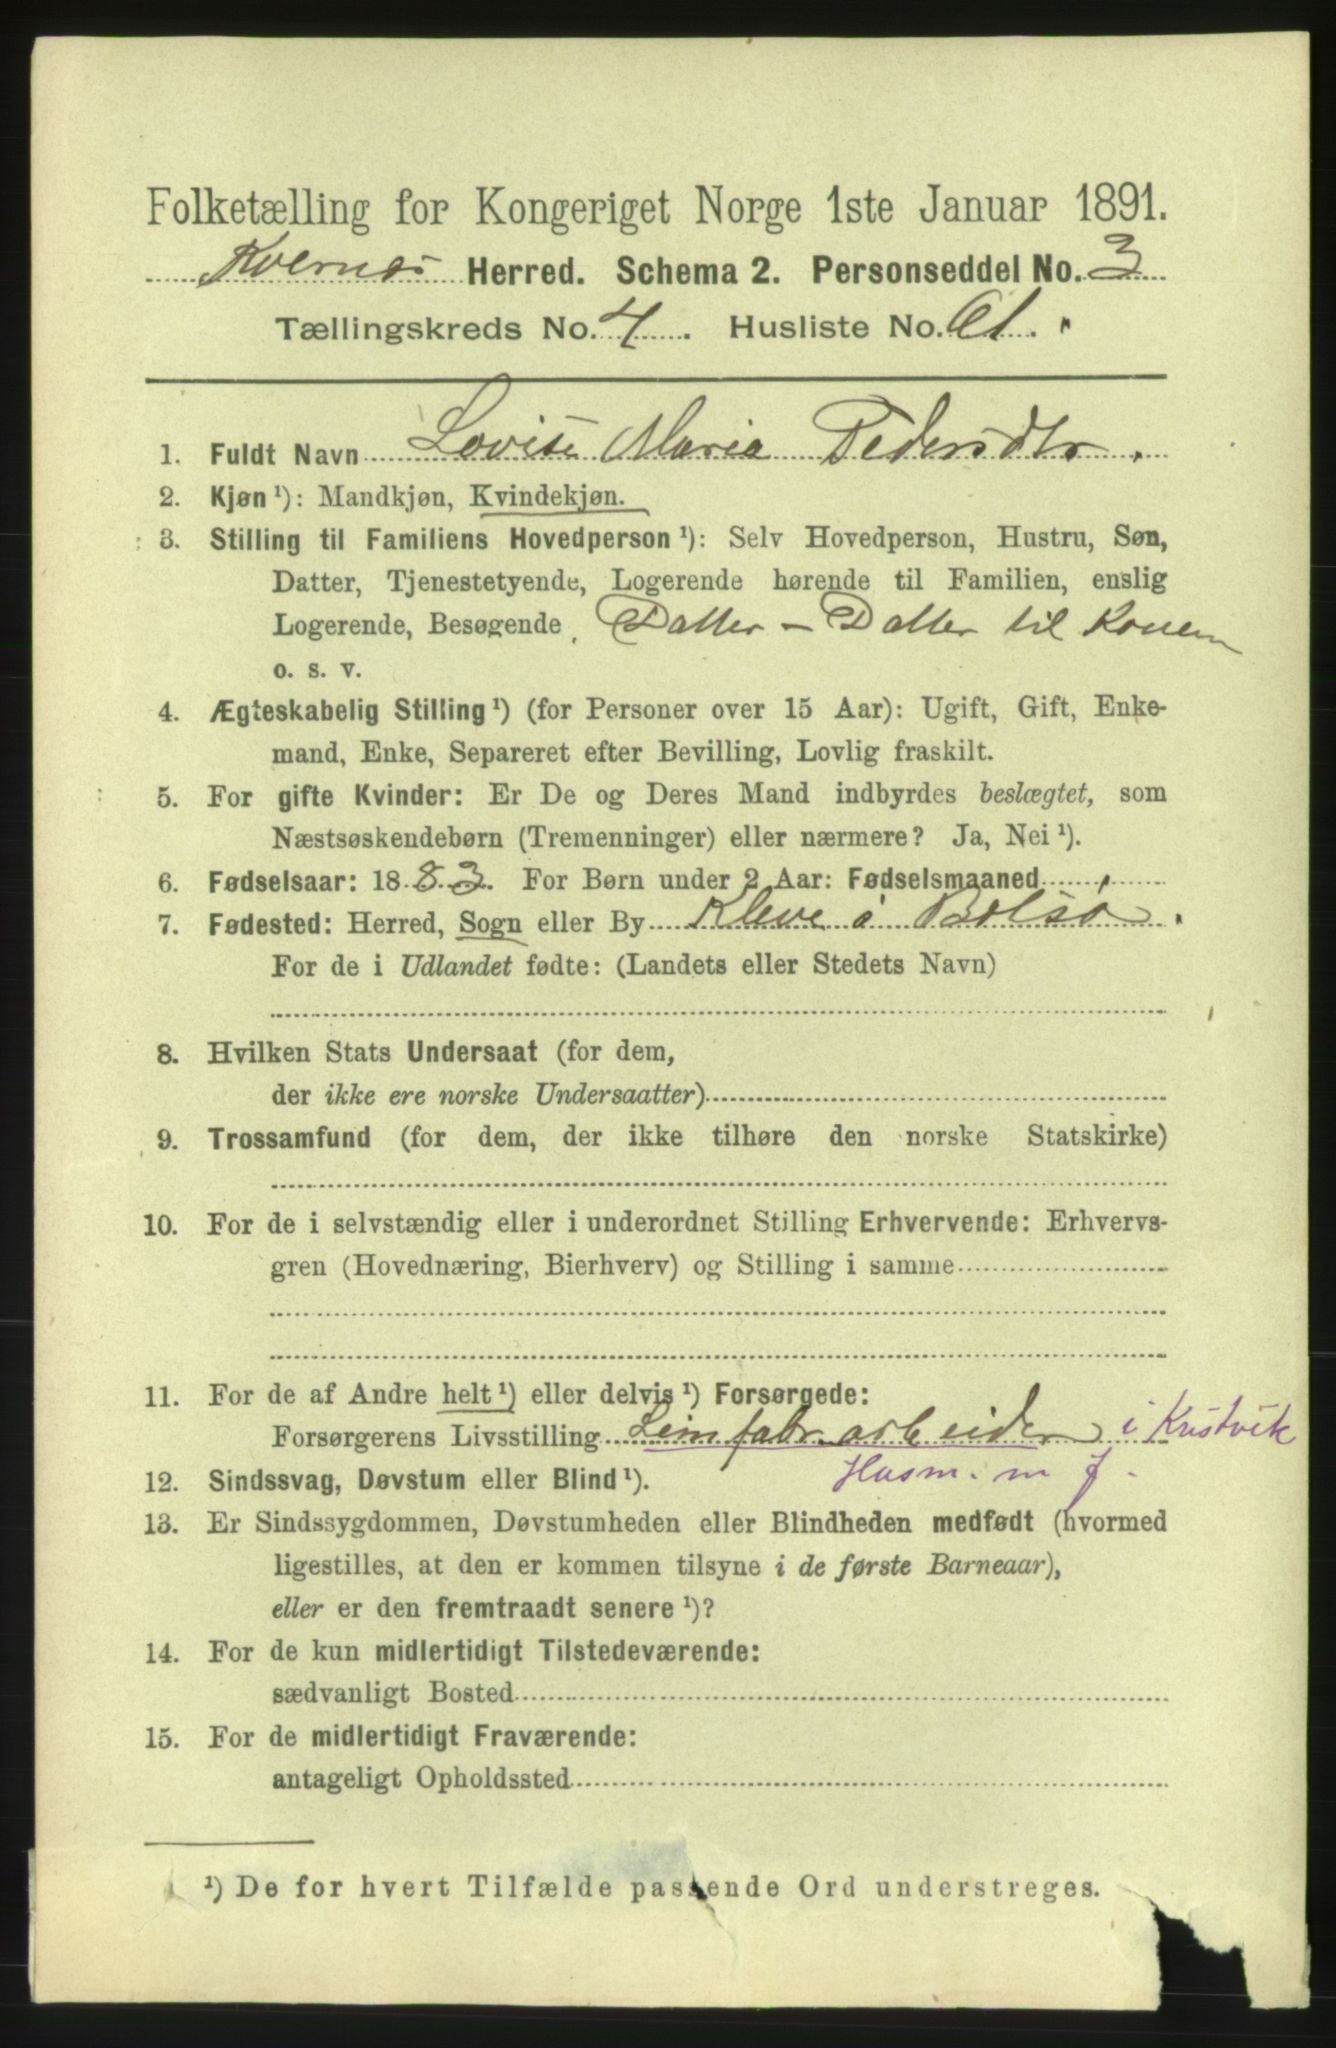 Folketælling for Kongeriget Norge 1ste Januar 1891.
Kvernes Herred. Schema 2. Personseddel No. 3
Tællingskreds No. 4. Husliste No. 61.
1. Fuldt Navn Lovise Maria Pedersdtr.
2. Kjøn ¹): Mandkjøn, Kvindekjøn.
3. Stilling til Familiens Hovedperson ¹): Selv Hovedperson, Hustru, Søn,
Datter, Tjenestetyende, Logerende hørende til Familien, enslig
Logerende, Besøgende Datter - Datter til Konen
o. s. v.
4. Ægteskabelig Stilling ¹) (for Personer over 15 Aar): Ugift, Gift, Enke-
mand, Enke, Separeret efter Bevilling, Lovlig fraskilt.
5. For gifte Kvinder: Er De og Deres Mand indbyrdes beslægtet, som
Næstsøskendebørn (Tremenninger) eller nærmere? Ja, Nei ¹).
6. Fødselsaar: 1883. For Børn under 2 Aar: Fødselsmaaned
7. Fødested: Herred, Sogn eller By Kleve i Bolsø.
For de i Udlandet fødte: (Landets eller Stedets Navn)
8. Hvilken Stats Undersaat (for dem,
der ikke ere norske Undersaatter)
9. Trossamfund (for dem, der ikke tilhøre den norske Statskirke)
10. For de i selvstændig eller i underordnet Stilling Erhvervende: Erhvervs-
gren (Hovednæring, Bierhverv) og Stilling i samme
11. For de af Andre helt ¹) eller delvis ¹) Forsørgede:
Forsørgerens Livsstilling Limfabr. arbeider i Kristvik
Husm. m J.
12. Sindssvag, Døvstum eller Blind ¹).
13. Er Sindssygdommen, Døvstumheden eller Blindheden medfødt (hvormed
ligestilles, at den er kommen tilsyne i de første Barneaar),
eller er den fremtraadt senere ¹)?
14. For de kun midlertidigt Tilstedeværende:
sædvanligt Bosted
15. For de midlertidigt Fraværende:
antageligt Opholdssted
¹) De for hvert Tilfælde passende Ord understreges.